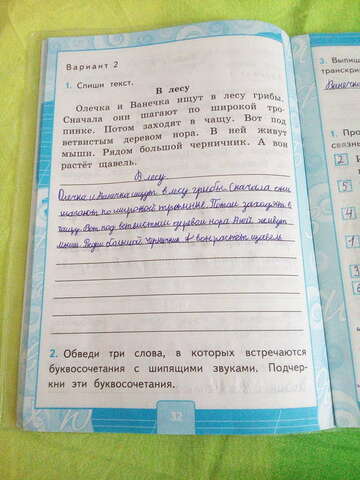 Вариант 2
1. Спиши текст.
В лесу
Олечка и Ванечка ищут в лесу грибы.
Сначала они шагают по широкой тро-
пинке. Потом заходят в чащу. Вот под
ветвистым деревом нора. В ней живут
мыши. Рядом большой черничник. А вон
растёт щавель.
В лесу
Олечка и Ванечка ищут в лесу грибы. Сначала они
шагают по широкой тропинке. Потом заходят в
чащу. Вот под ветвистым деревом нора. В ней живут
мыши. Рядом большой черничник. А вон растёт щавель.
2. Обведи три слова, в которых встречаются
буквосочетания с шипящими звуками. Подчер-
кни эти буквосочетания.
32
3. Выпиш
транскри
Ванечк
1. Про
связны
2
5
1
3
4
6